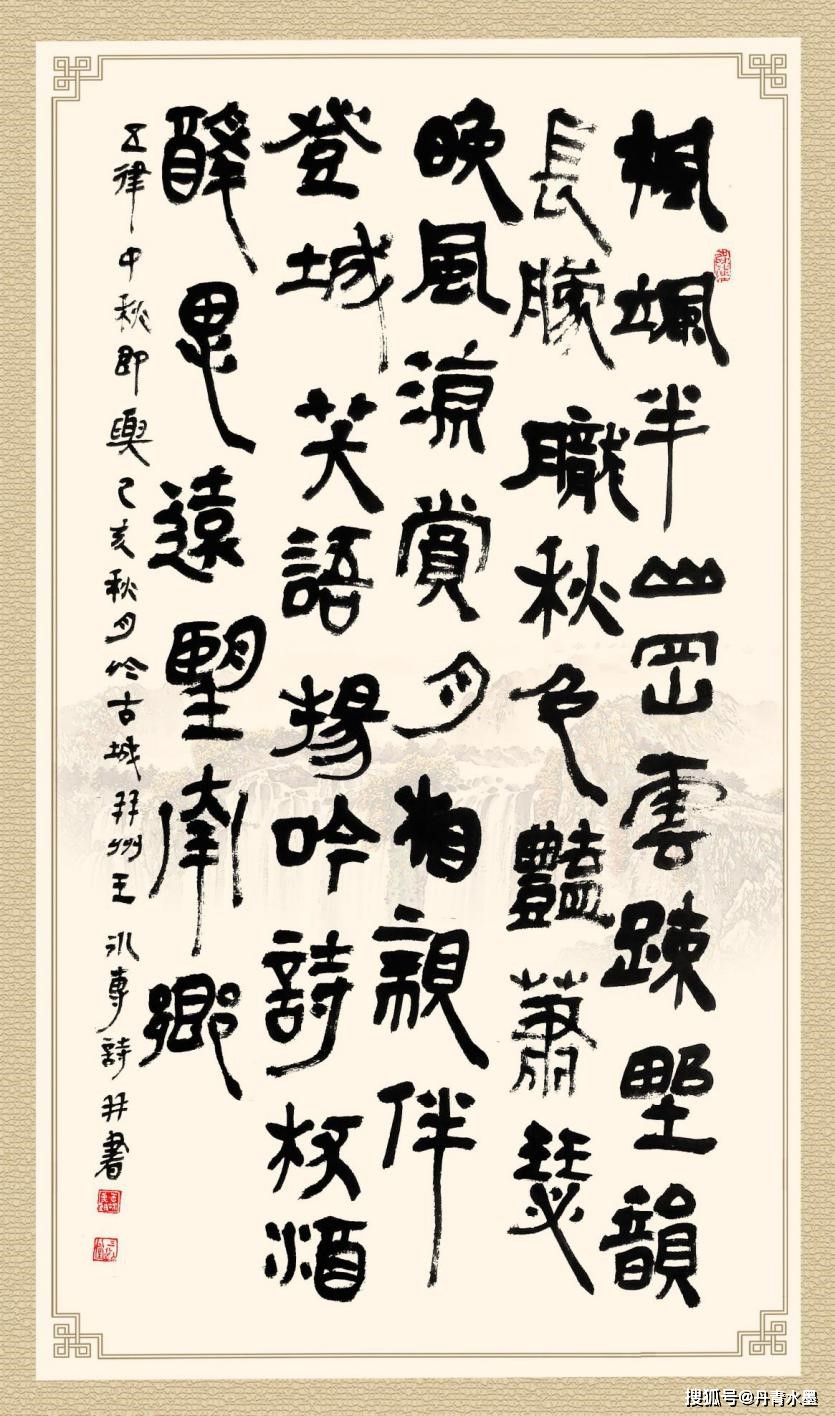 楓颯半山岡雲踈野韻
長朦朧秋色豔蕭瑟
晚風涼賞月相親伴
登城笑語揚吟詩杯酒
醉思遠望南鄉
五律中秋即興己亥秋月於古城并州王專詩并書
搜狐号@丹青水墨